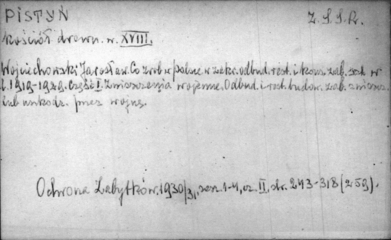 PISTYŃ Z.S.S.R.
kościół drewn. w. XVIII.
Wojciechowski Jarosław. Co zrob. w polsce w zakr. odbud. rest. i kons. zab. sod w
l. 1918-1929. Część I. Zniszczenia wojenne. Odbud. i rest. budow. zab. zniszcz.
lub uszkodz. przez wojnę.
Ochrona Zabytków. 1930/31, zesz. 1-4, cz. II, str. 243-318 (259).